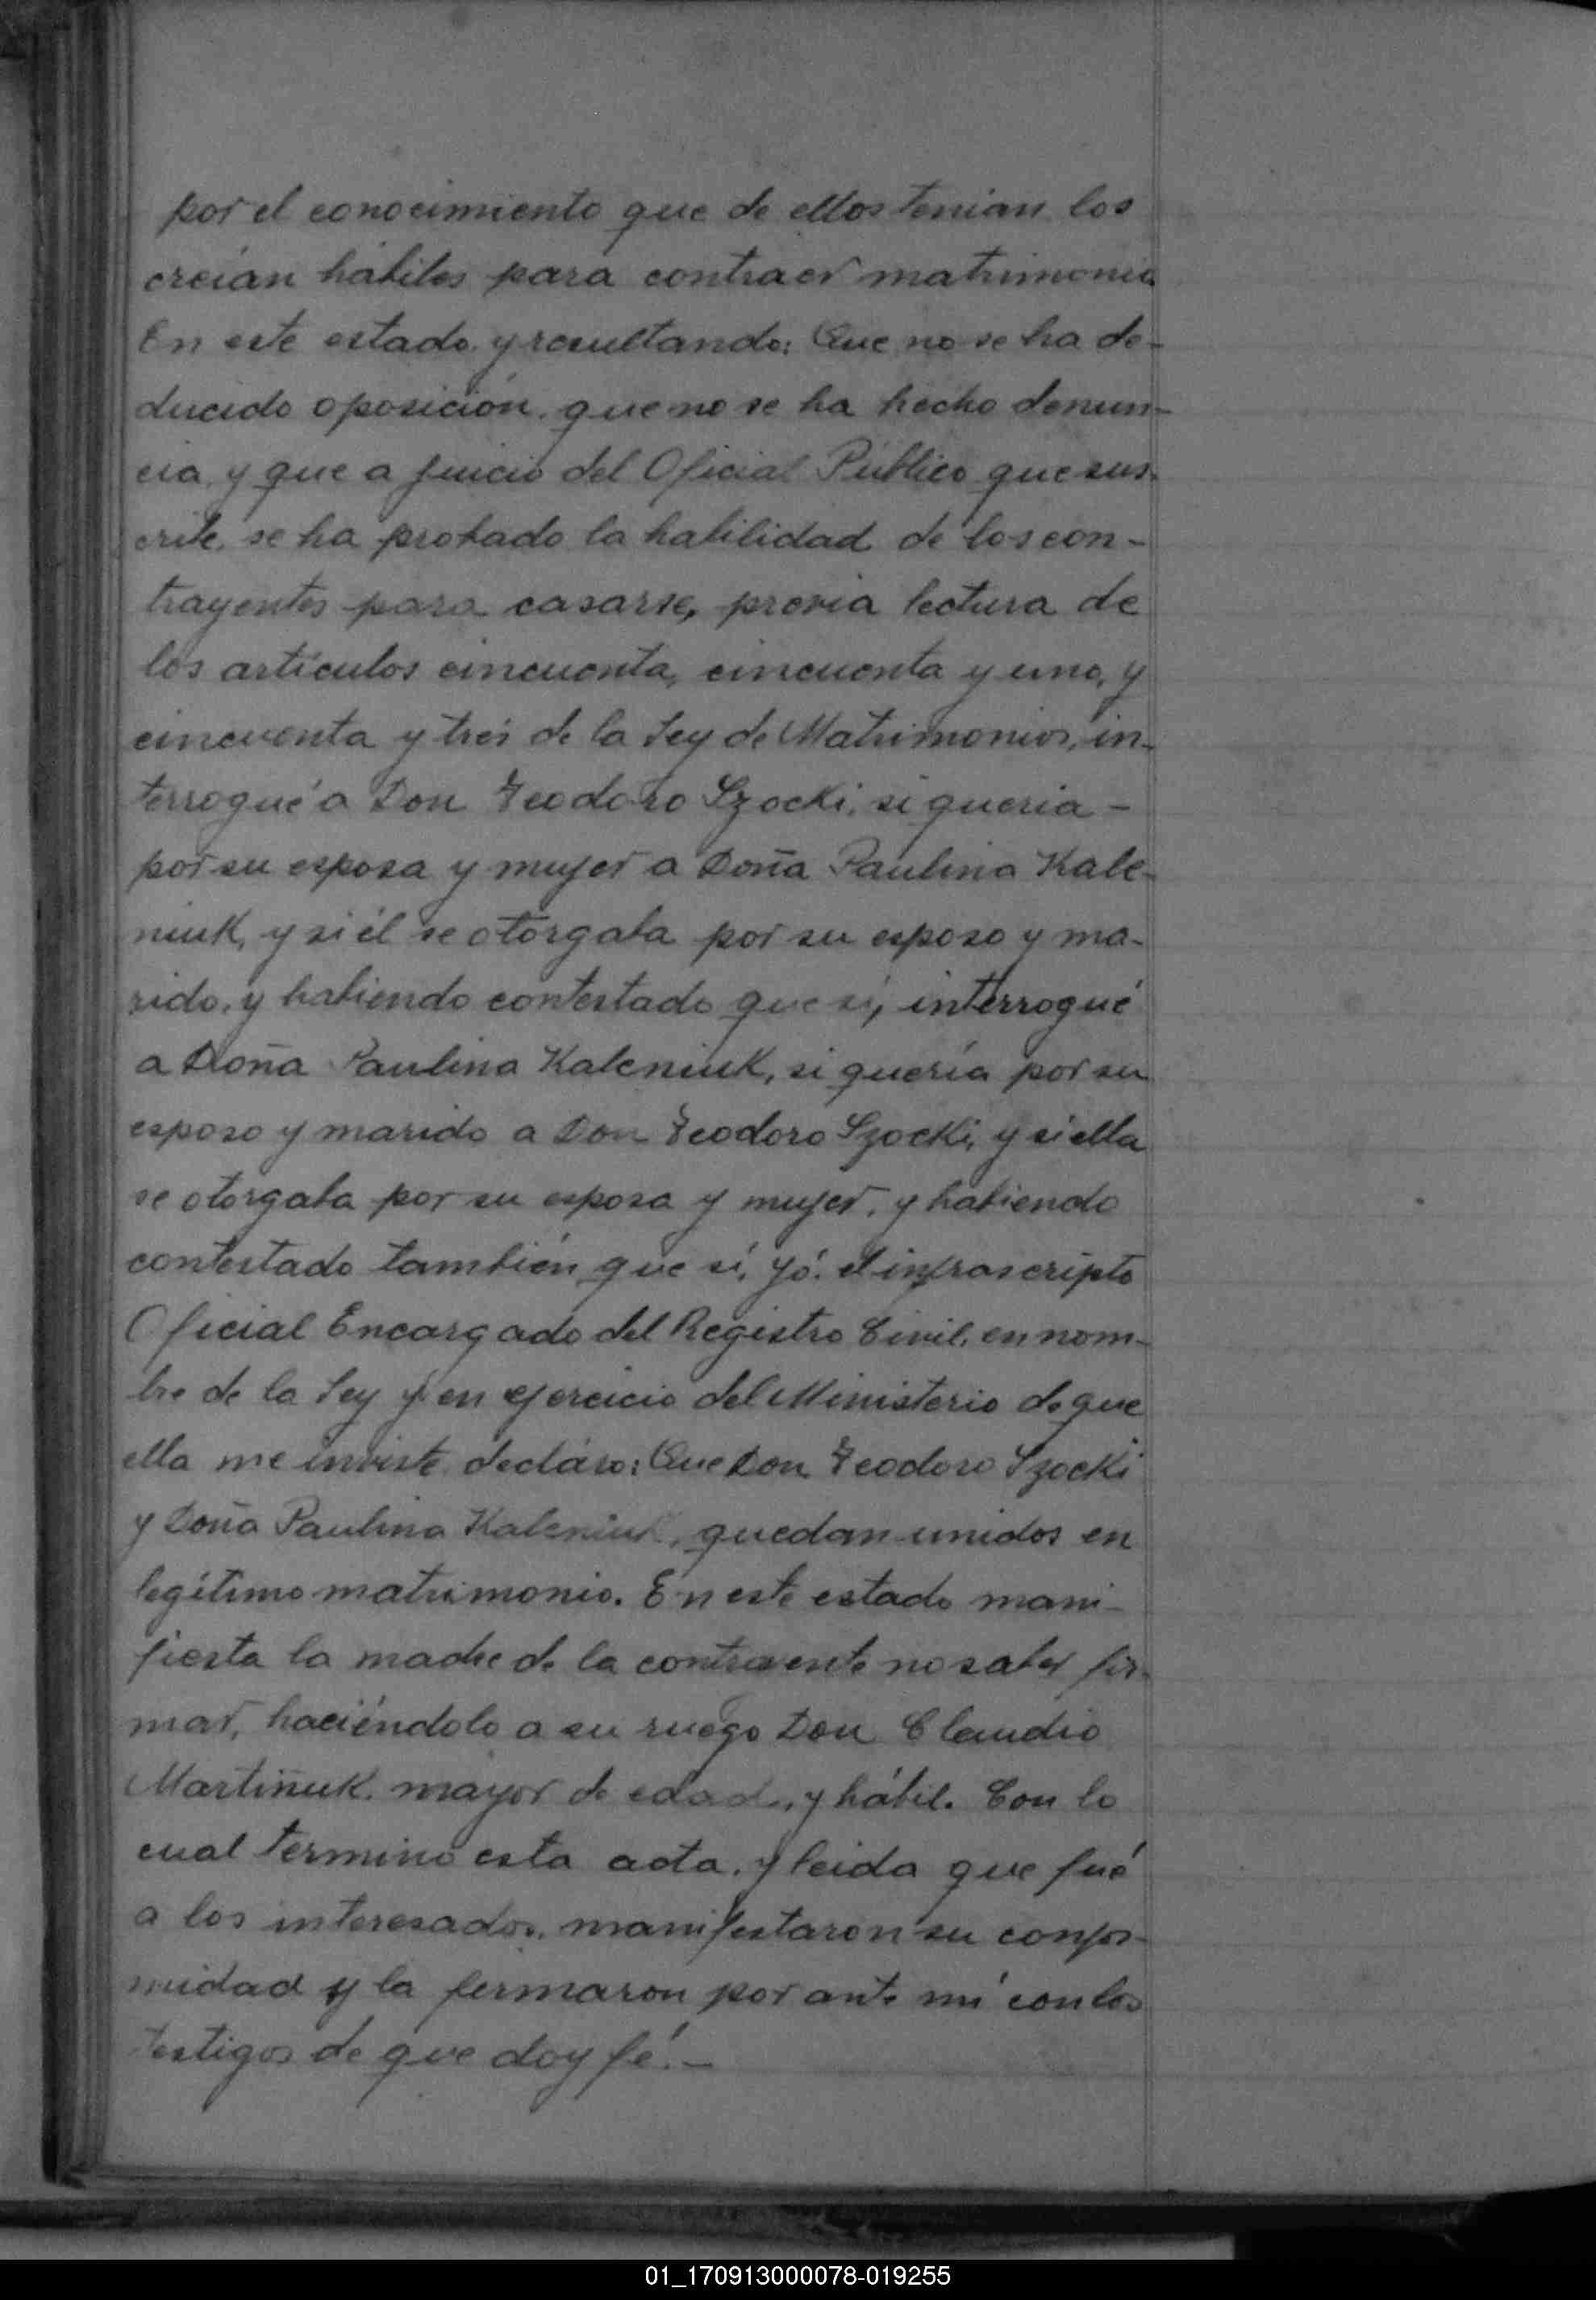 por el conocimiento que de ellos tenian los
creían hábiles para contraer matrimonio
En este estado y resultando: Que no se ha de-
ducido oposición, que no se ha hecho denun-
cia, y que a juicio del Oficial Público que sus-
cribe, se ha probado la habilidad de los con-
trayentes para casarse, previa lectura de
los artículos cincuenta, cincuenta y uno, y
cincuenta y tres de la Ley de Matrimonios, in-
terrogué a Don Teodoro Szocki, si queria -
por su esposa y mujer a Doña Paulina Kale-
niuk, y si él se otorgaba por su esposo y ma-
rido, y habiendo contestado que sí, interrogué
a Doña Paulina Kaleniuk, si quería por su
esposo y marido a Don Teodoro Szocki, y si ella
se otorgaba por su esposa y mujer, y habiendo
contestado también que sí, yó, el infrascripto
Oficial Encargado del Registro Civil, en nom-
bre de la Ley y en ejercicio del Ministerio de que
ella me inviste, declaro: Que Don Teodoro Szocki
y Doña Paulina Kaleniuk, quedan unidos en
legítimo matrimonio. En este estado mani-
fiesta la madre de la contrayente no saber fir-
mar, haciéndolo a su ruego Don Claudio
Martiñuk, mayor de edad, y hábil. Con lo
cual terminó esta acta, y leida que fué
a los interesados, manifestaron su confor-
midad y la firmaron por ante mí con los
testigos de que doy fé.-
01_170913000078-019255